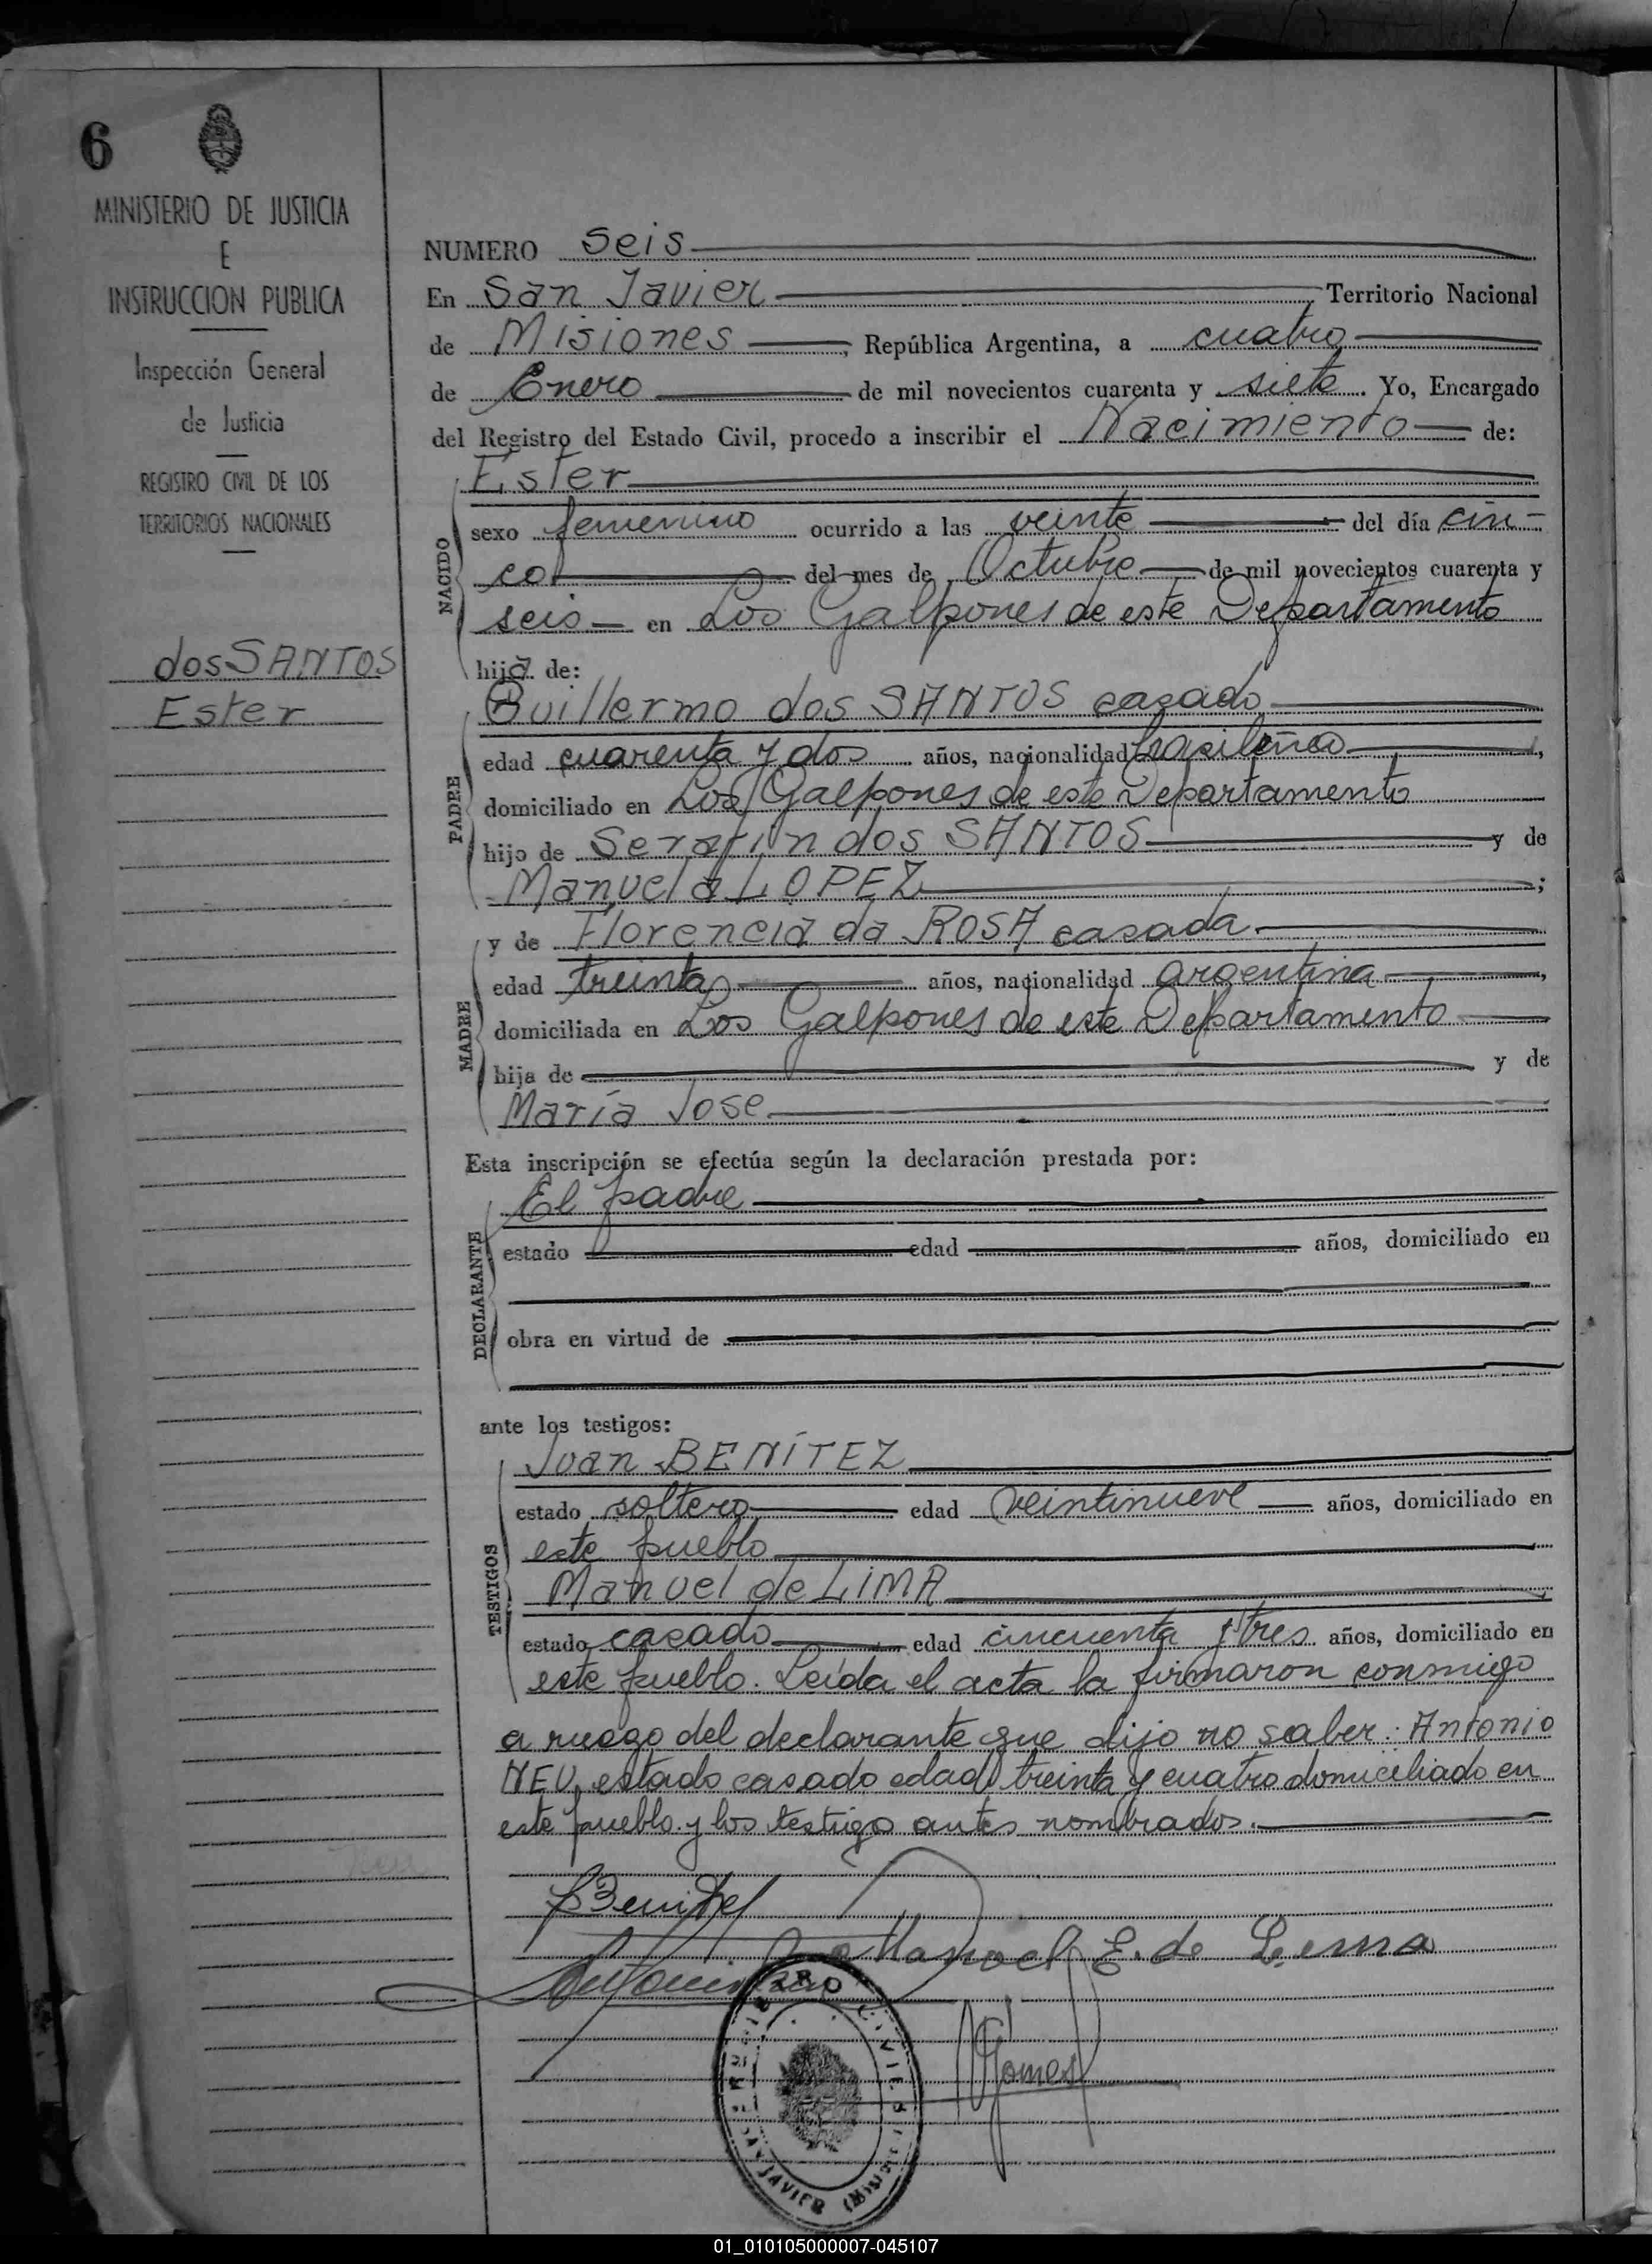 6
MINISTERIO DE JUSTICIA
E
INSTRUCCION PUBLICA
Inspección General
de Justicia
REGISTRO CIVIL DE LOS
TERRITORIOS NACIONALES
dos SANTOS
Ester
NUMERO seis
En San Javier Territorio Nacional
de Misiones, República Argentina, a cuatro
de Enero de mil novecientos cuarenta y siete. Yo, Encargado
del Registro del Estado Civil, procedo a inscribir el Nacimiento de:
NACIDO
Ester
sexo femenino ocurrido a las veinte del día cin-
co del mes de Octubre de mil novecientos cuarenta y
seis en Los Galpones de este Departamento
hija de:
PADRE
Guillermo dos SANTOS casado
edad cuarenta y dos años, nacionalidad brasileña,
domiciliado en Los Galpones de este Departamento
hijo de Serafin dos SANTOS y de
Manuela LOPEZ;
MADRE
y de Florencia da ROSA casada
edad treinta años, nacionalidad argentina,
domiciliada en Los Galpones de este Departamento
hija de y de
María Jose
Esta inscripción se efectúa según la declaración prestada por:
DECLARANTE
El padre
estado edad años, domiciliado en
obra en virtud de
ante los testigos:
TESTIGOS
Juan BENÍTEZ
estado soltero edad veintinueve años, domiciliado en
este pueblo
Manuel de LIMA
estado casado edad cincuenta y tres años, domiciliado en
este pueblo. Leída el acta la firmaron conmigo
a ruego del declarante que dijo no saber: Antonio
NEU, estado casado edad treinta y cuatro domiciliado en
este pueblo y los testigo antes nombrados.
JBenitez
Manoel E. de Lima
Gomes
JAVIER
01_010105000007-045107